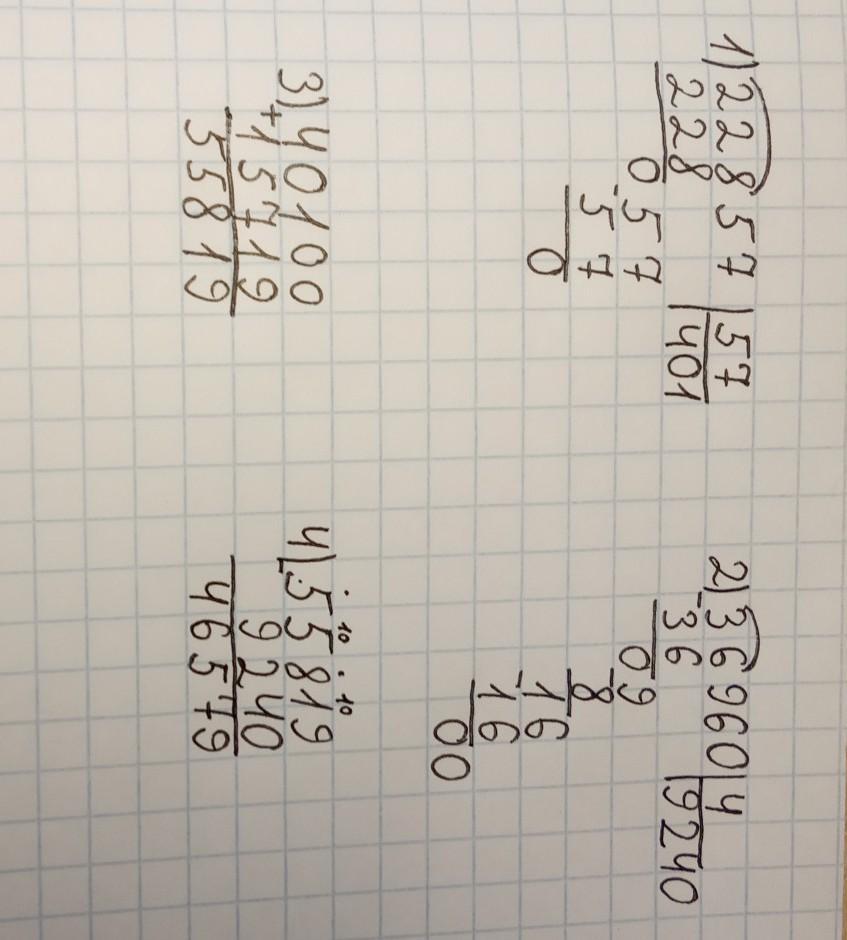 1) 22857 | 57
228 | 401
057
-57
0
2) 36960 | 4
-36 | 9240
09
-8
16
-16
00
3) 40100
+15719
55819
. 10 . 10
4) 55819
- 9240
46579